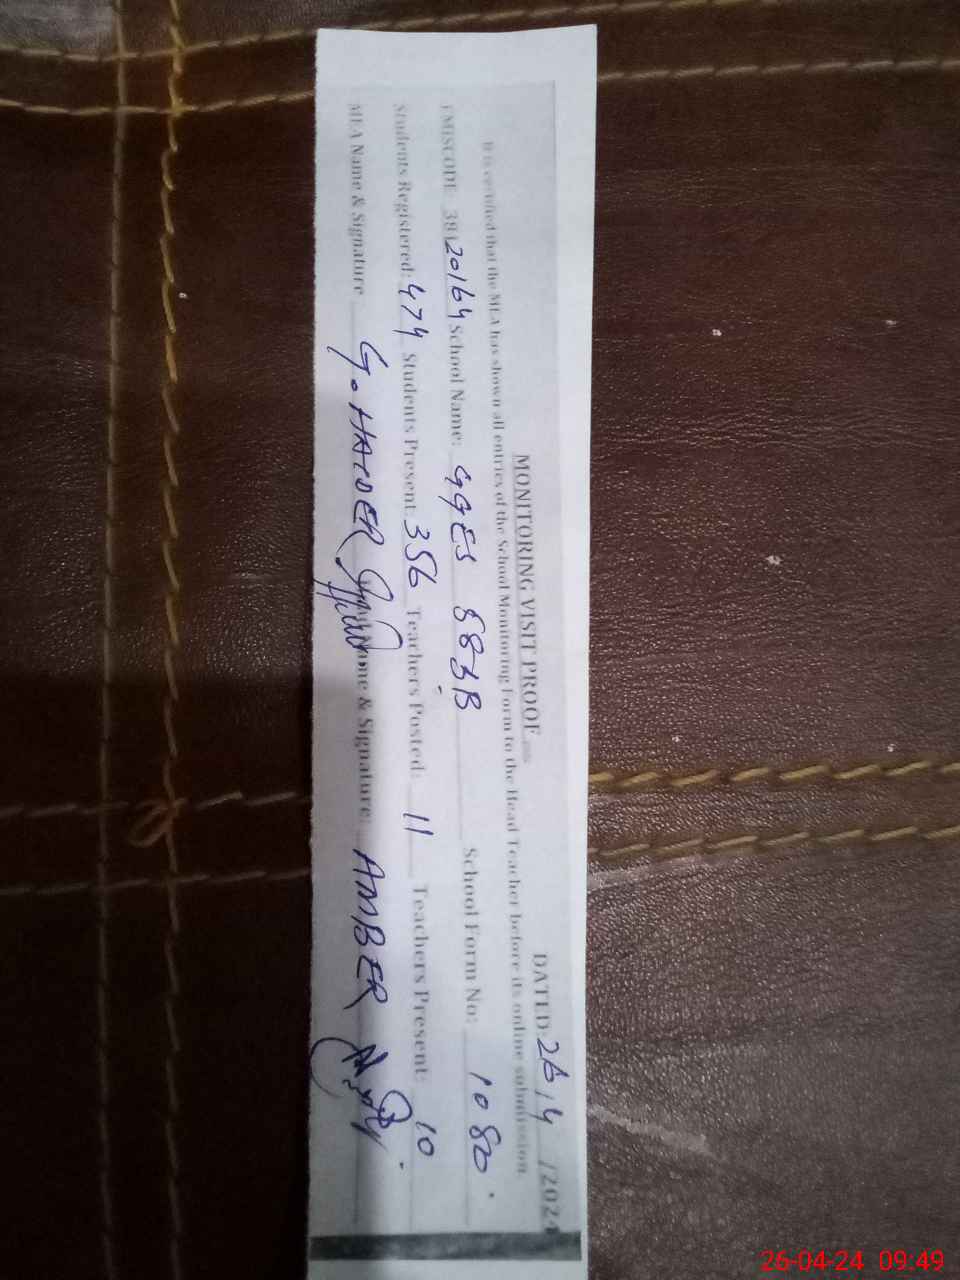 MONITORING VISIT PROOF
DATED: 26/4/2024
It is certified that the MEA has shown all entries of the School Monitoring Form to the Head Teacher before its online submission.
EMISCODE: 38120164 School Name: GGES 58 B School Form No: 1080
Students Registered: 474 Students Present: 356 Teachers Posted: 11 Teachers Present: 10
MEA Name & Signature G. HAIDER Name & Signature: AMBER
26-04-24 09:49